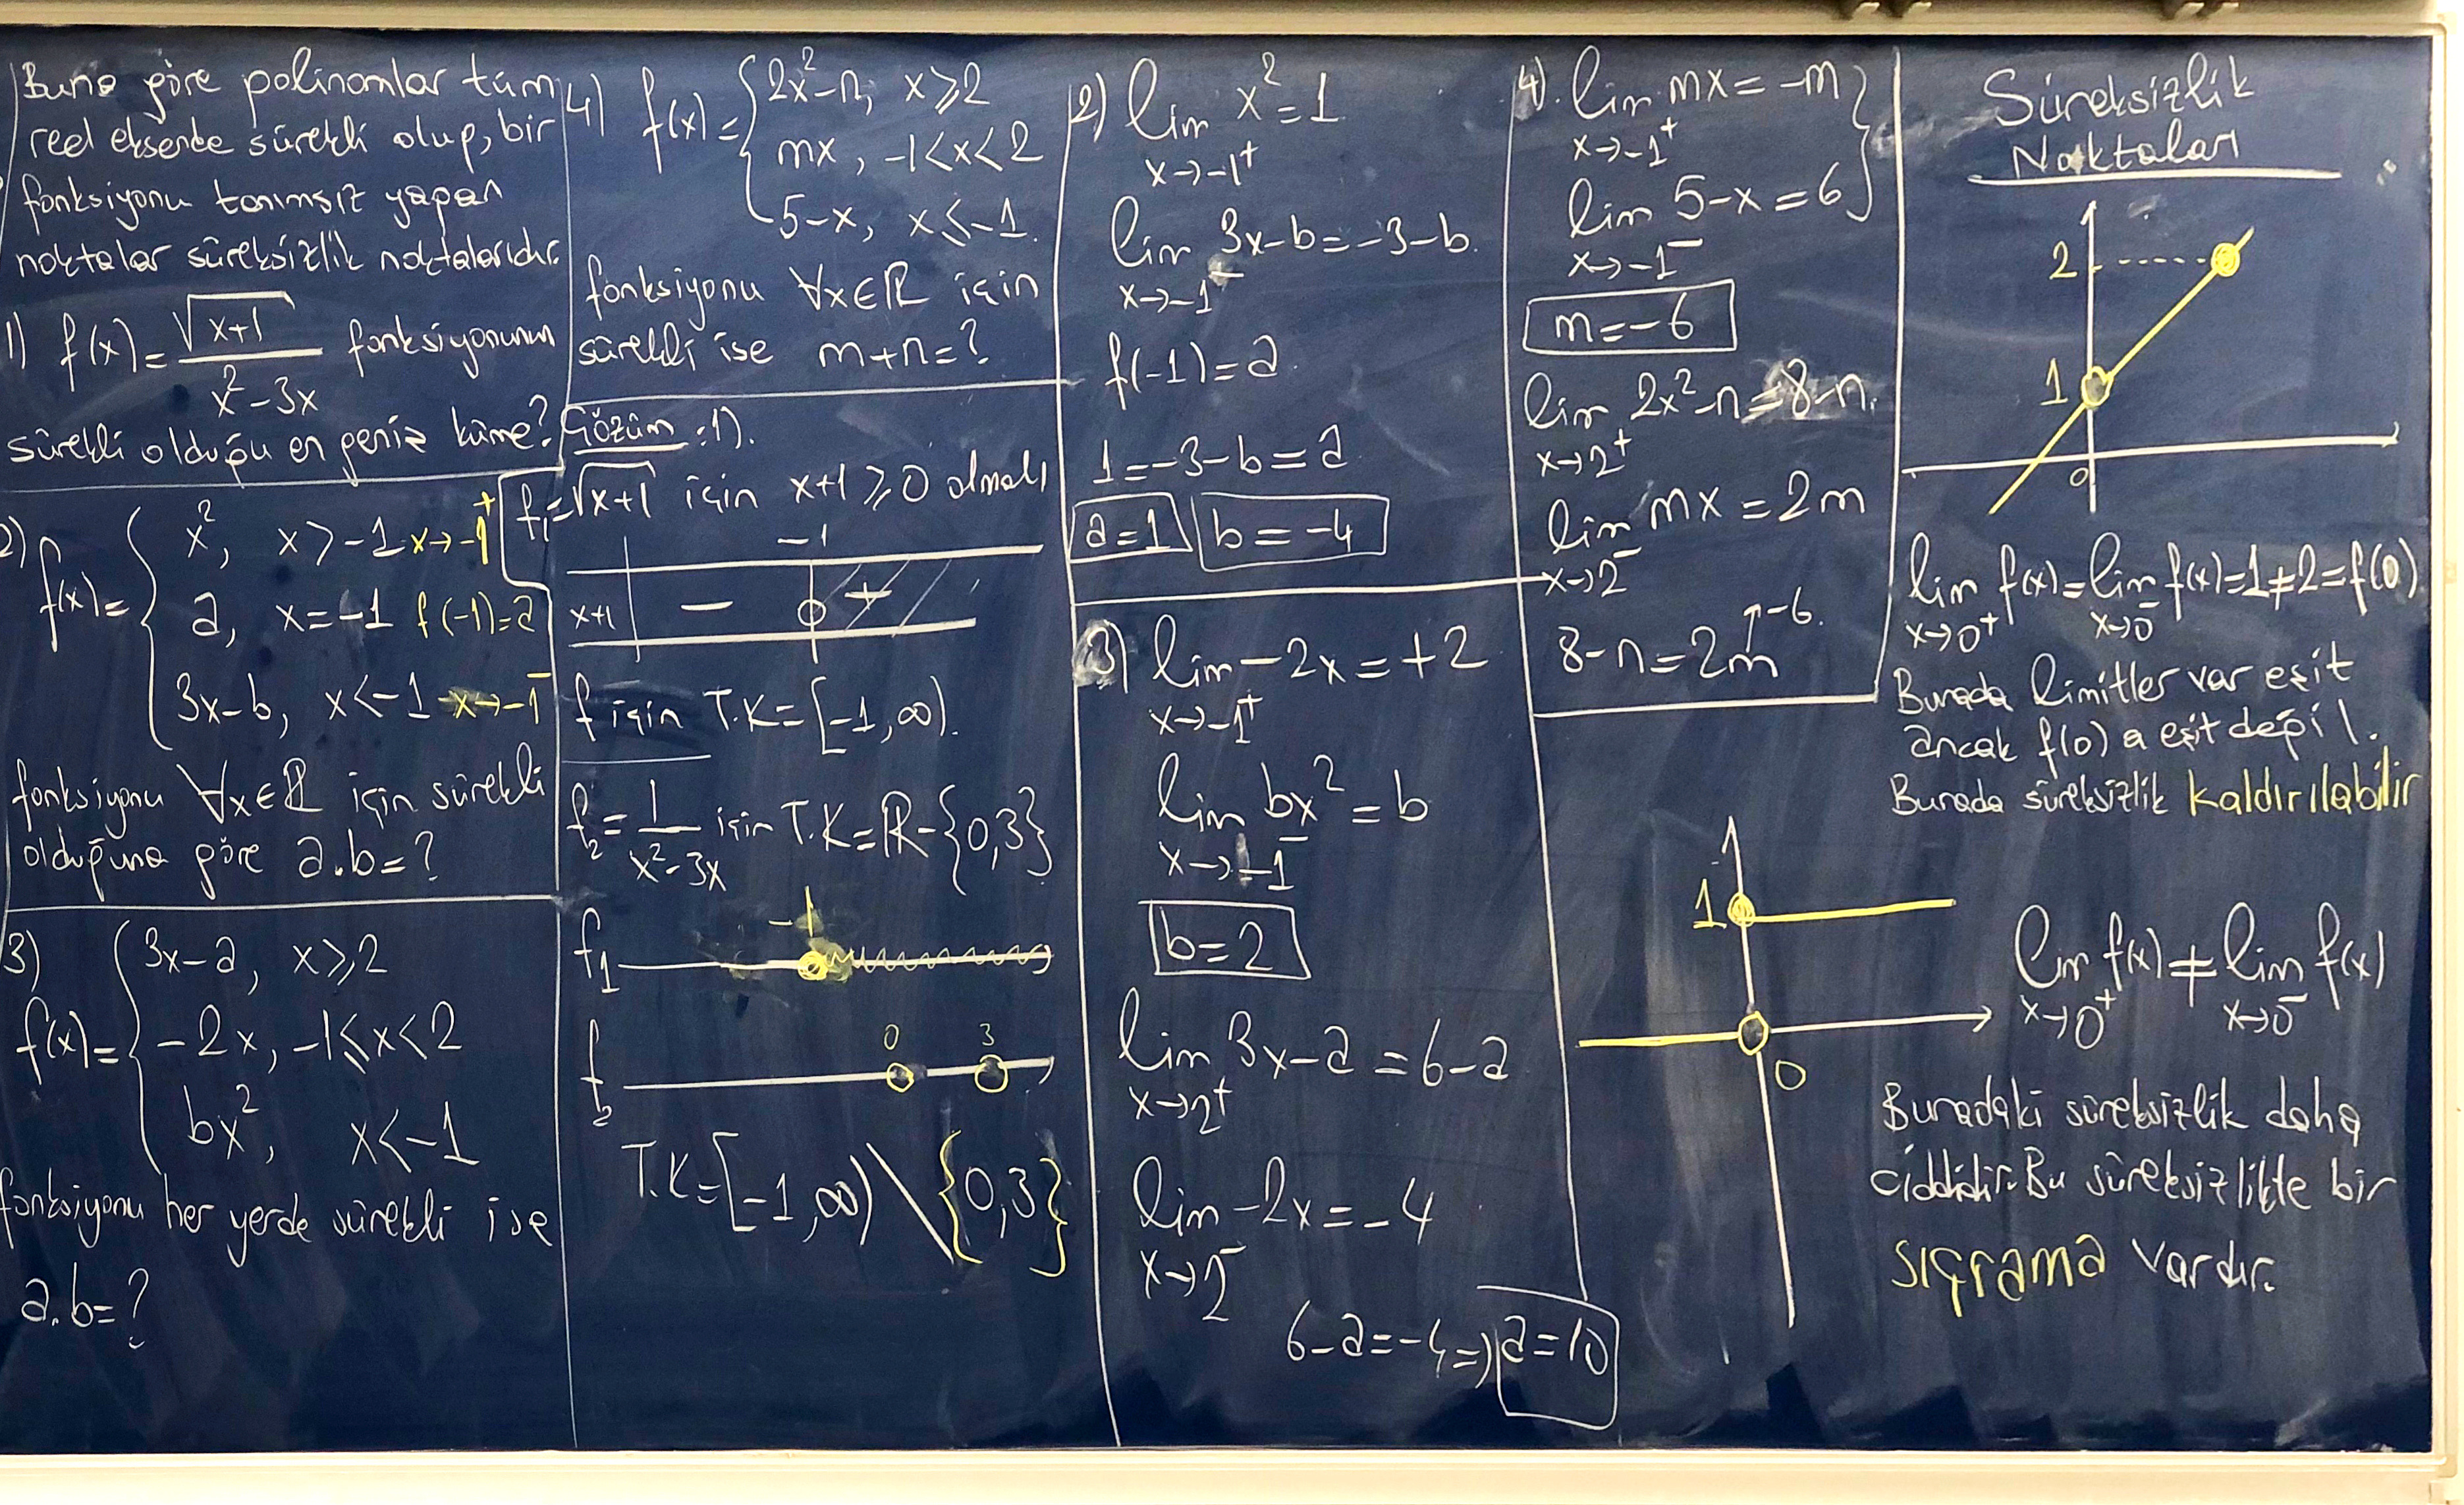 Buna göre polinomlar tüm
reel eksende sürekli olup, bir
fonksiyonu tanımsız yapan
noktalar süreksizlik noktalarıdır.
1) f(x)=√(x+1)/(x²-3x) fonksiyonunun
sürekli olduğu en geniş küme?
2) f(x)= { x², x>-1 x→-1⁺
a, x=-1 f(-1)=a
3x-b, x<-1 x→-1⁻
fonksiyonu ∀x∈ℝ için sürekli
olduğuna göre a.b=?
3)
f(x)= { 3x-a, x≥2
-2x, -1≤x<2
bx², x<-1
fonksiyonu her yerde sürekli ise
a.b=?
4) f(x)= { 2x²-n, x≥2
mx, -1<x<2
5-x, x≤-1.
fonksiyonu ∀x∈ℝ için
sürekli ise m+n=?
Çözüm:1).
f₁=√(x+1) için x+1≥0 olmalı
-1
x+1 - +
f için T.K=[-1,∞).
f₂=1/(x²-3x) için T.K=ℝ-{0,3}
-1
f₁
0 3
f₂
T.K=[-1,∞)\{0,3}
2) lim x²=1
x→-1⁺
lim 3x-b=-3-b.
x→-1⁻
f(-1)=a.
1=-3-b=a
a=1 b=-4
3) lim -2x=+2
x→-1⁺
lim bx²=b
x→-1⁻
b=2
lim 3x-a=6-a
x→2⁺
lim -2x=-4
x→2⁻
6-a=-4⇒ a=10
4). lim mx=-m
x→-1⁺
lim 5-x=6 }
x→-1⁻
m=-6
lim 2x²-n=8-n.
x→2⁺
lim mx=2m
x→2⁻
↗-6.
8-n=2m
Süreksizlik
Noktaları
2
1
0
lim f(x)=lim f(x)=1≠2=f(0).
x→0⁺ x→0⁻
Burada limitler var eşit
ancak f(0) a eşit değil.
Burada süreksizlik kaldırılabilir
1
0
lim f(x)≠lim f(x)
x→0⁺ x→0⁻
Buradaki süreksizlik daha
ciddidir. Bu süreksizlikte bir
sıçrama vardır.